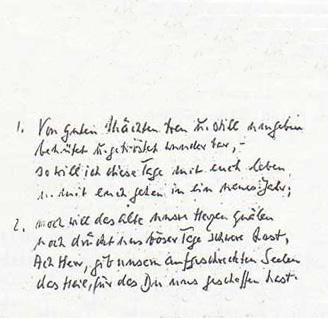 1. Von guten Mächten treu u. still umgeben
behütet u. getröstet wunderbar, –
so will ich diese Tage mit euch leben
u. mit euch gehen in ein neues Jahr;
2. noch will das alte unsre Herzen quälen
noch drückt uns böser Tage schwere Last,
Ach Herr, gib unsern aufgeschreckten Seelen
das Heil, für das Du uns geschaffen hast.